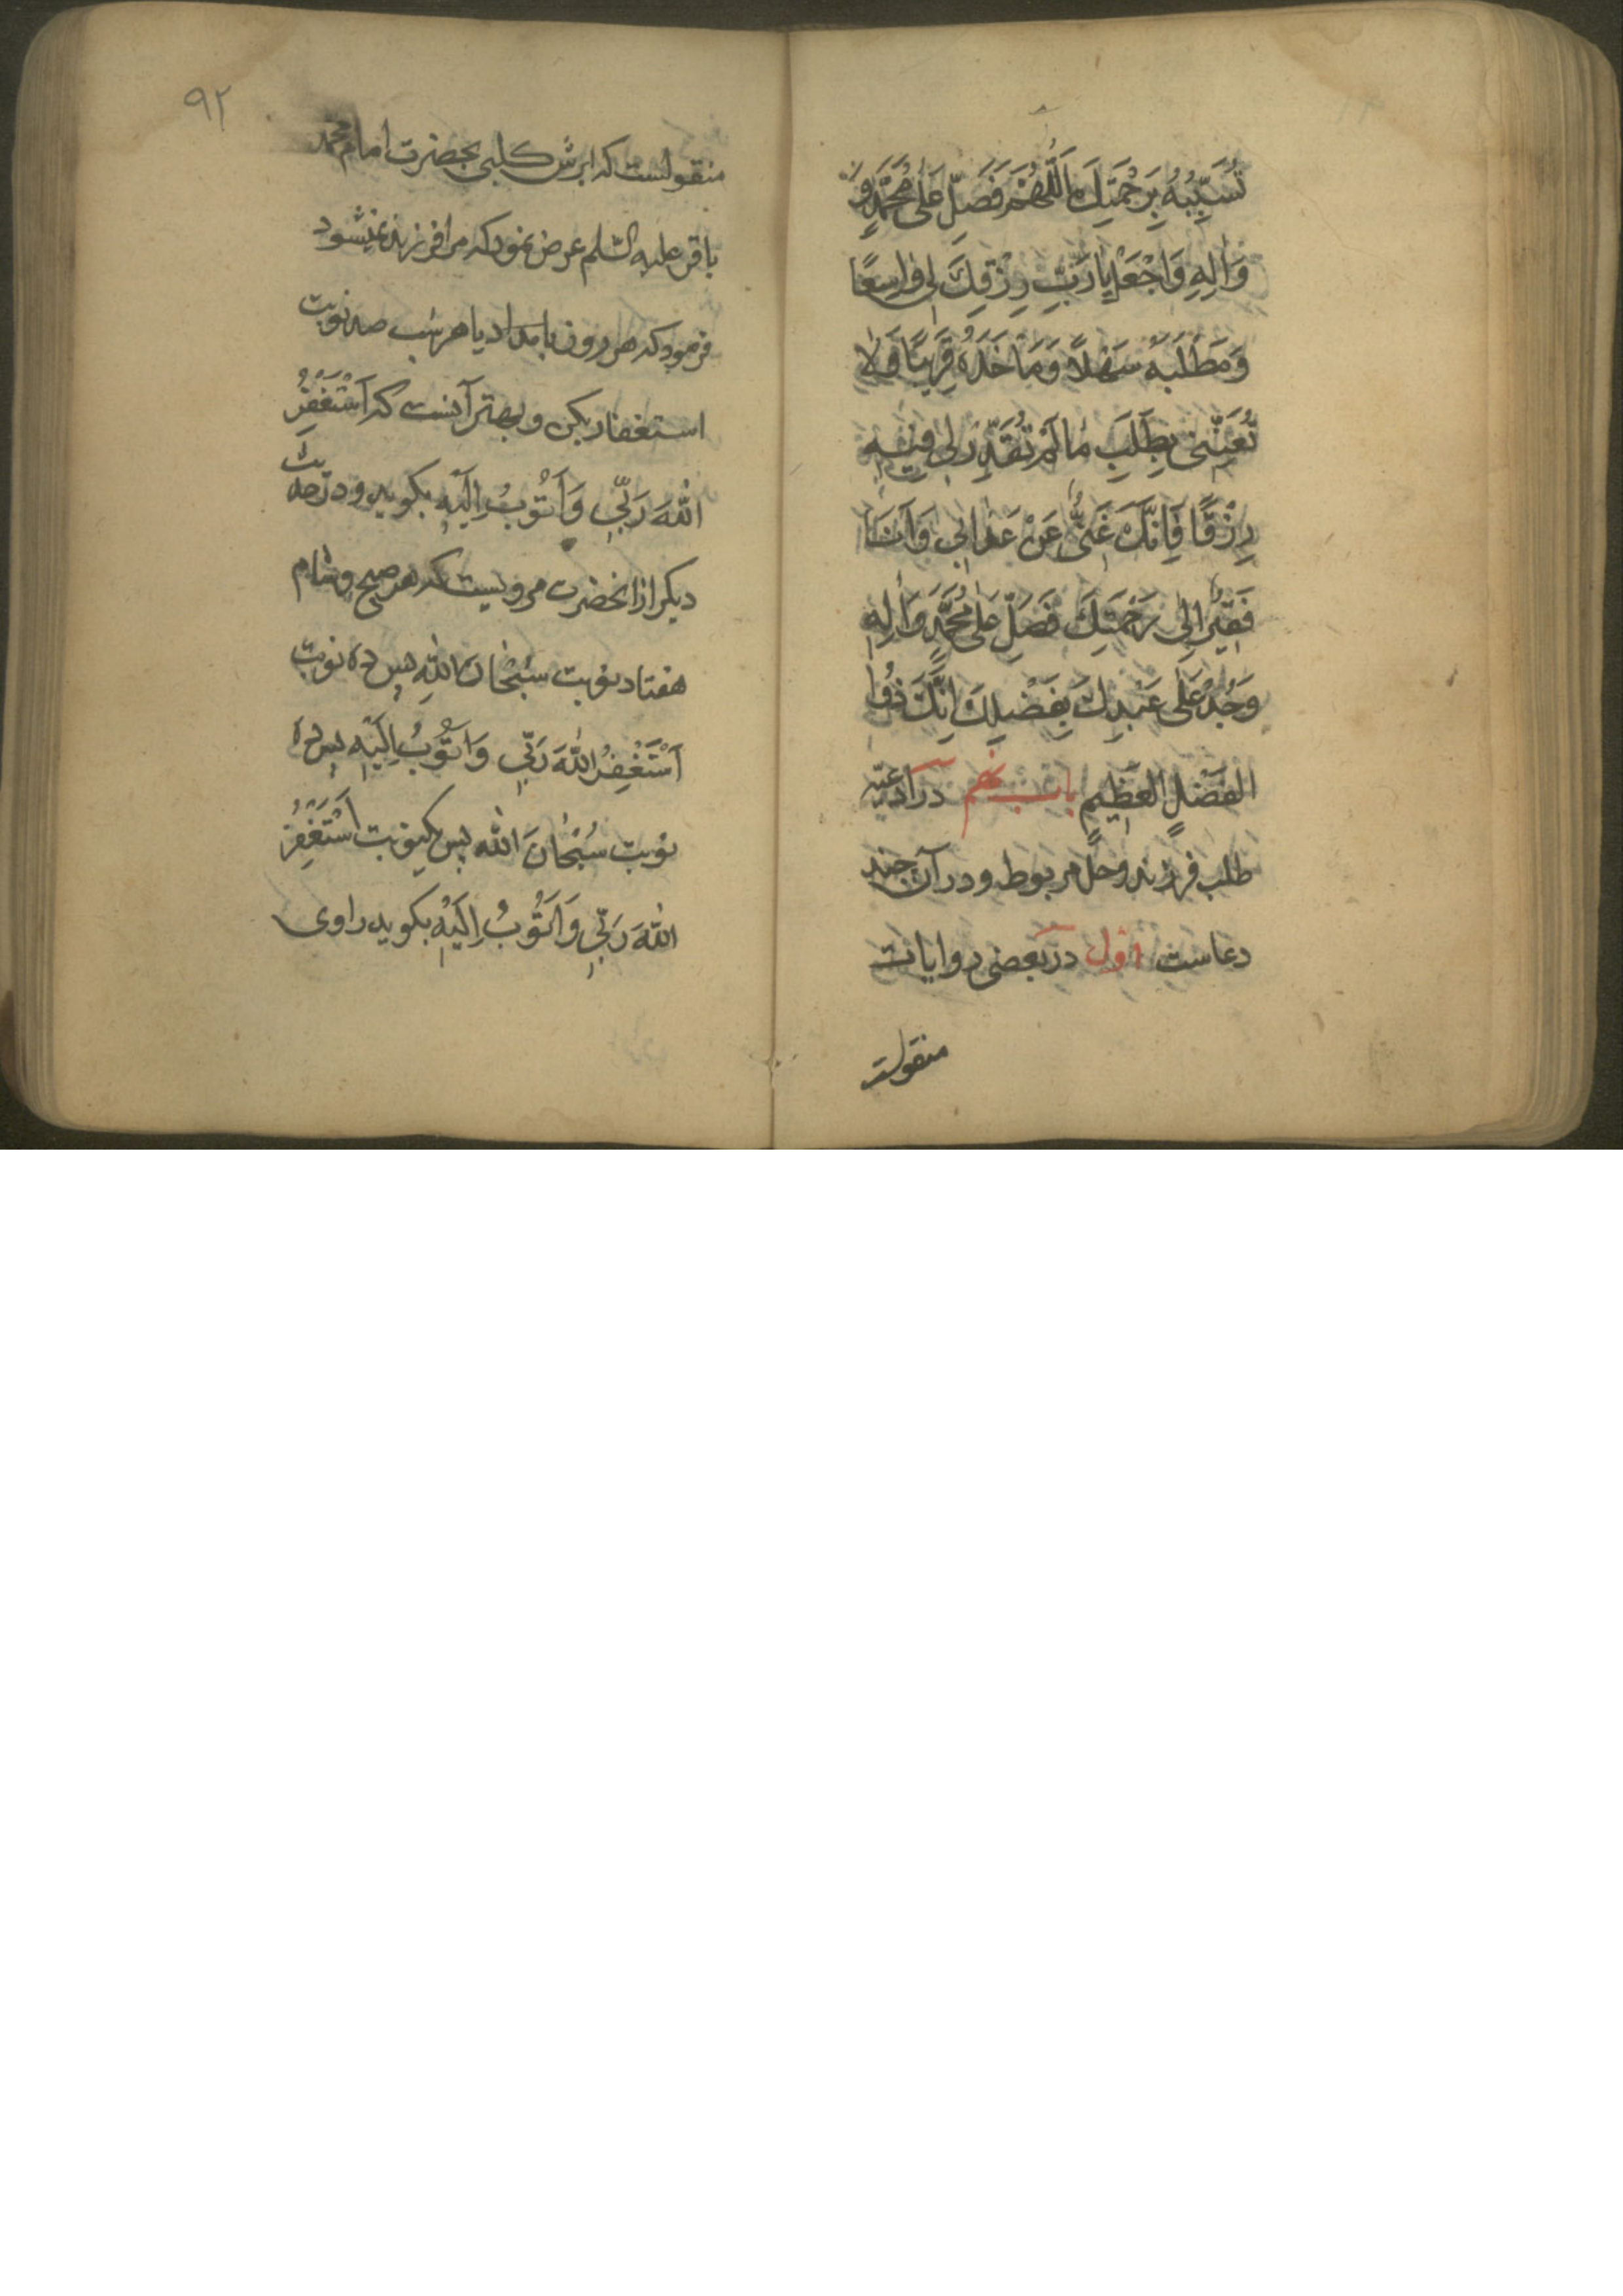 تُسَبِّبُهُ بِرَحْمَتِكَ اَللّٰهُمَّ فَصَلِّ عَلٰی مُحَمَّدٍ وَ
وَاٰلِهِ وَاجْعَلْ یٰا رَبِّ رِزْقِكَ لِی وٰاسِعًا
وَمَطْلَبَهُ سَهْلًا وَمَاْخَذَهُ قَرِیبًا وَلٰا
تُعَنِّنِی بِطَلَبِ مٰا لَمْ تُقَدِّرْ لِی فِیهِ
رِزْقًا فَاِنَّكَ غَنِیٌّ عَنْ عَذٰابِی وَاَنَا
فَقِیرٌ اِلٰی رَحْمَتِكَ فَصَلِّ عَلٰی مُحَمَّدٍ وَاٰلِهِ
وَجُدْ عَلٰی عَبْدِكَ بِفَضْلِكَ اِنَّكَ ذُوا
الفَضْلِ العَظِیمِ باب نهم در ادعیه
طلب فرزند وحمل مربوط ودر آن چند
دعاست اول در بعضی روایات
منقولست
۹۲
منقولست که ابرش کلبی بحضرت امام محمد
باقر علیه السلم عرض نمود که مرا فرزند نمیشود
فرمود که هر روز بامداد یا هر شب صد نوبت
استغفار بکن و بهتر آنست که اَسْتَغْفِرُ
اللّٰهَ رَبِّی وَاَتُوبُ اِلَیْهِ بکوید و در حدیث
دیکر از انحضرت مرویست که هر صبح و شام
هفتاد نوبت سُبْحٰانَ اللّٰهِ پس ده نوبت
اَسْتَغْفِرُ اللّٰهَ رَبِّی وَاَتُوبُ اِلَیْهِ پس ده
نوبت سُبْحٰانَ اللّٰه پس یکنوبت اَسْتَغْفِرُ
اللّٰهَ رَبِّی وَاَتُوبُ اِلَیْهِ بکوید راوی